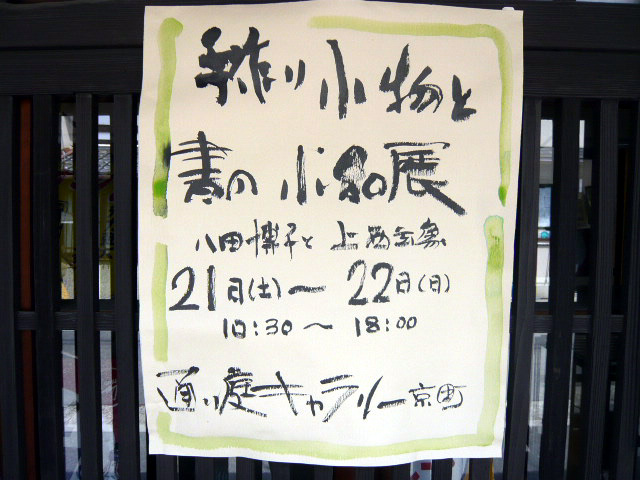 手作り小物と
書の小品展
八田博子と上西
21日(土)〜22日(日)
10:30〜18:00
通り庭ギャラリー京町